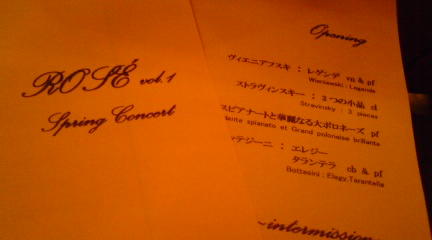 ROSÉ vol.1
Spring Concert
Opening
ヴィエニアフスキ : レゲンデ vn & pf
Wieniawski : Legende
ストラヴィンスキー : 3つの小品 cl
Stravinsky : 3 pieces
スピアナートと華麗なる大ポロネーズ pf
spianato et Grand polonaise brillante
テジーニ : エレジー
タランテラ cb & pf
Bottesini : Elegy, Tarantella
~intermission~